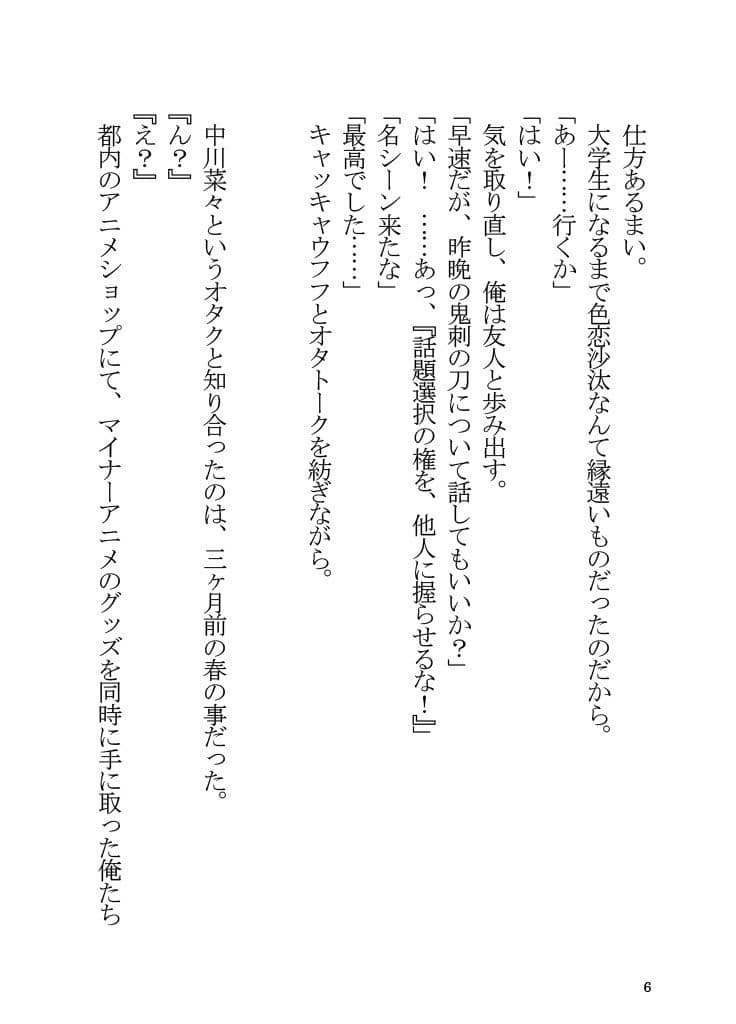 仕方あるまい。
大学生になるまで色恋沙汰なんて縁遠いものだったのだから。
「あー……行くか」
「はい！」
気を取り直し、俺は友人と歩み出す。
「早速だが、昨晩の鬼刺の刀について話してもいいか？」
「はい！　……あっ、『話題選択の権を、他人に握らせるな！』」
「名シーン来たな」
「最高でした……」
キャッキャウフフとオタトークを紡ぎながら。
中川菜々というオタクと知り合ったのは、三ヶ月前の春の事だった。
『ん？』
『え？』
都内のアニメショップにて、マイナーアニメのグッズを同時に手に取った俺たち
6